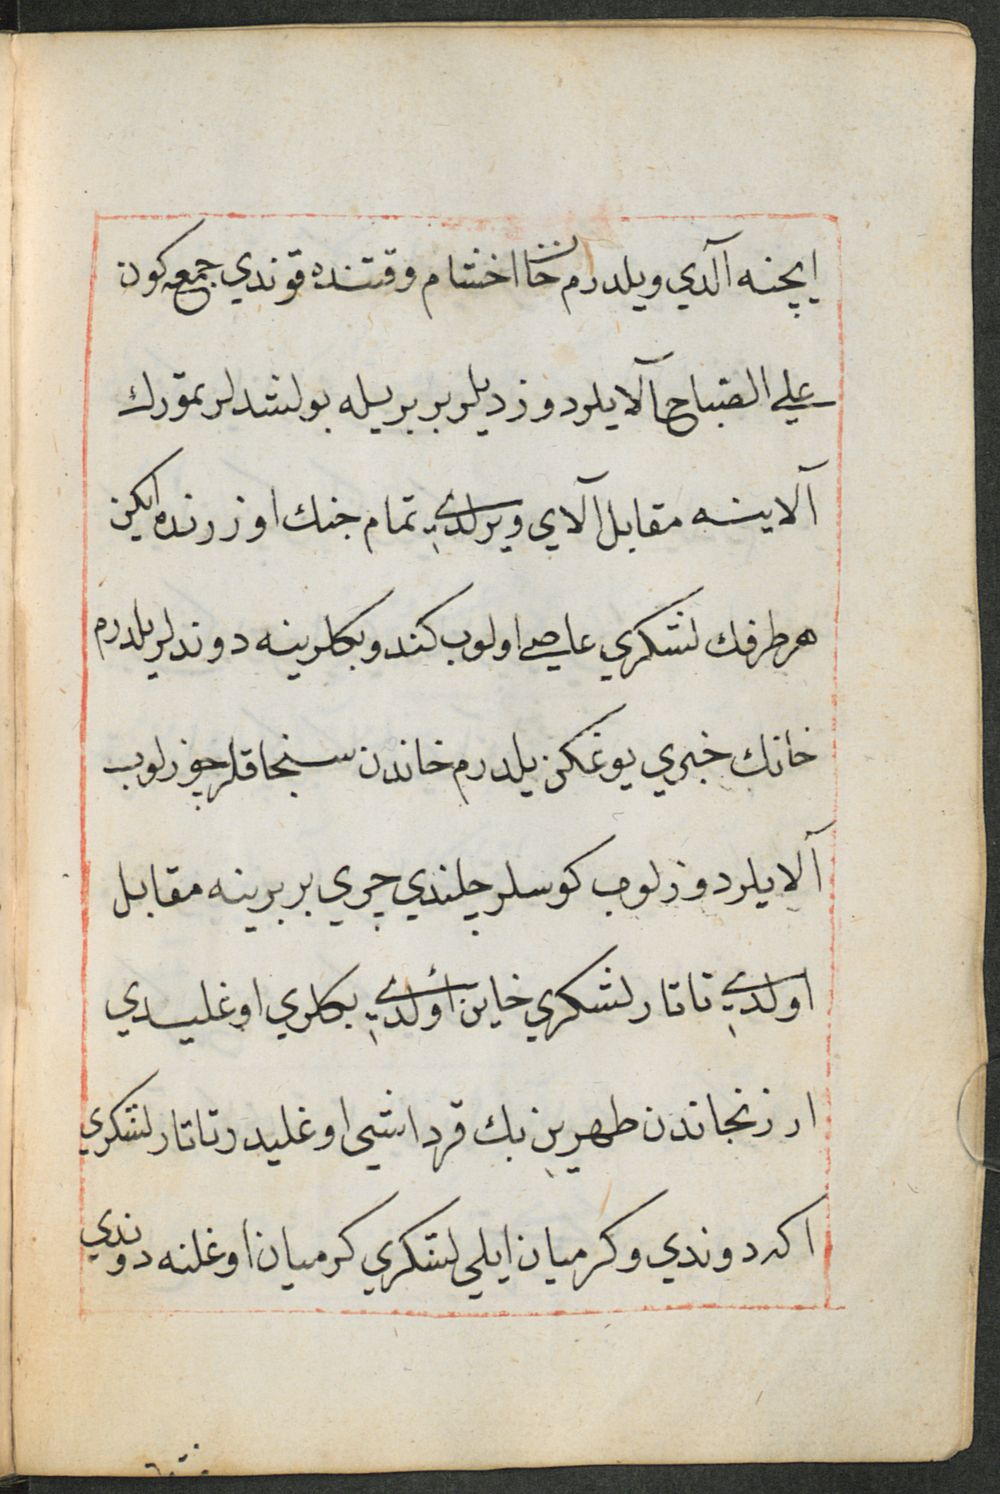 ايچنه آلدي ويلدرم خان اخشام وقتنده قوندي جمعه كون
علي الصباح آلايلر دوزديلر بر بريله بولشدلر تمورك
آلاينه مقابل آلاي ويرلدي تمام جنك اوزرنده ايكن
هر طرفك لشكري عاصي اولوب كندو بكلرينه دوندلر يلدرم
خانك خبري يوغكن يلدرم خاندن سنجاقلر چوزلوب
آلايلر دوزلوب كوسلر چلندي چري بر برينه مقابل
اولدي تاتار لشكري خاين اولدي بكلري اوغليدي
ارزنجاندن طهرين بك قرداشي اوغليدر تاتار لشكري
اكه دوندي وكرميان ايلي لشكري كرميان اوغلنه دوندي